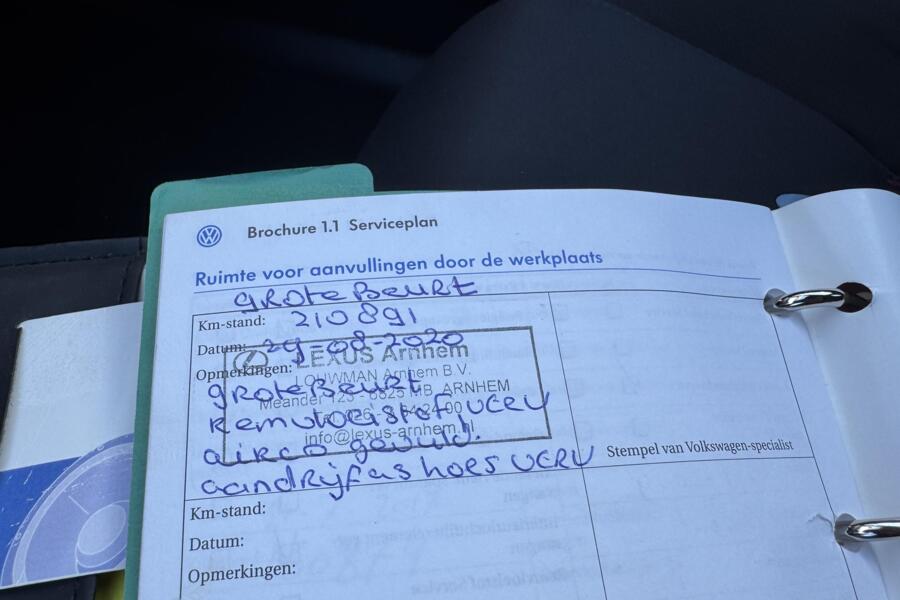 Brochure 1.1 Serviceplan
Ruimte voor aanvullingen door de werkplaats
grote Beurt
Km-stand: 210891
Datum: 29-08-2020
LEXUS Arnhem
Opmerkingen:
LOUWMAN Arnhem B.V.
grote Beurt
Meander 125 - 6825 MB ARNHEM
Remvloeistof verv
info@lexus-arnhem.nl
airco gevuld.
Stempel van Volkswagen-specialist
aandrijfas hoes verv
Km-stand:
Datum:
Opmerkingen: